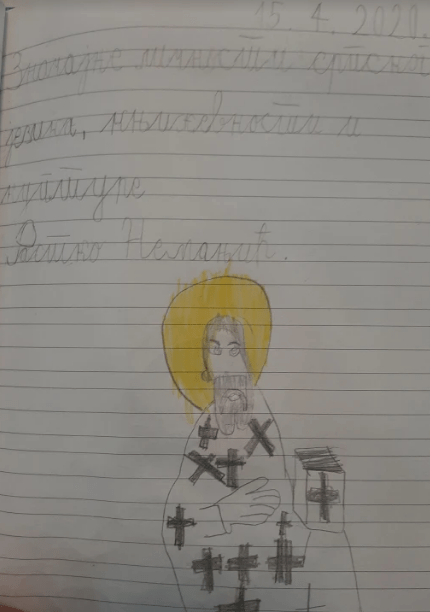 15. 4. 2020.
Значајне личности српског
језика, књижевности и
културе
Растко Немањић.